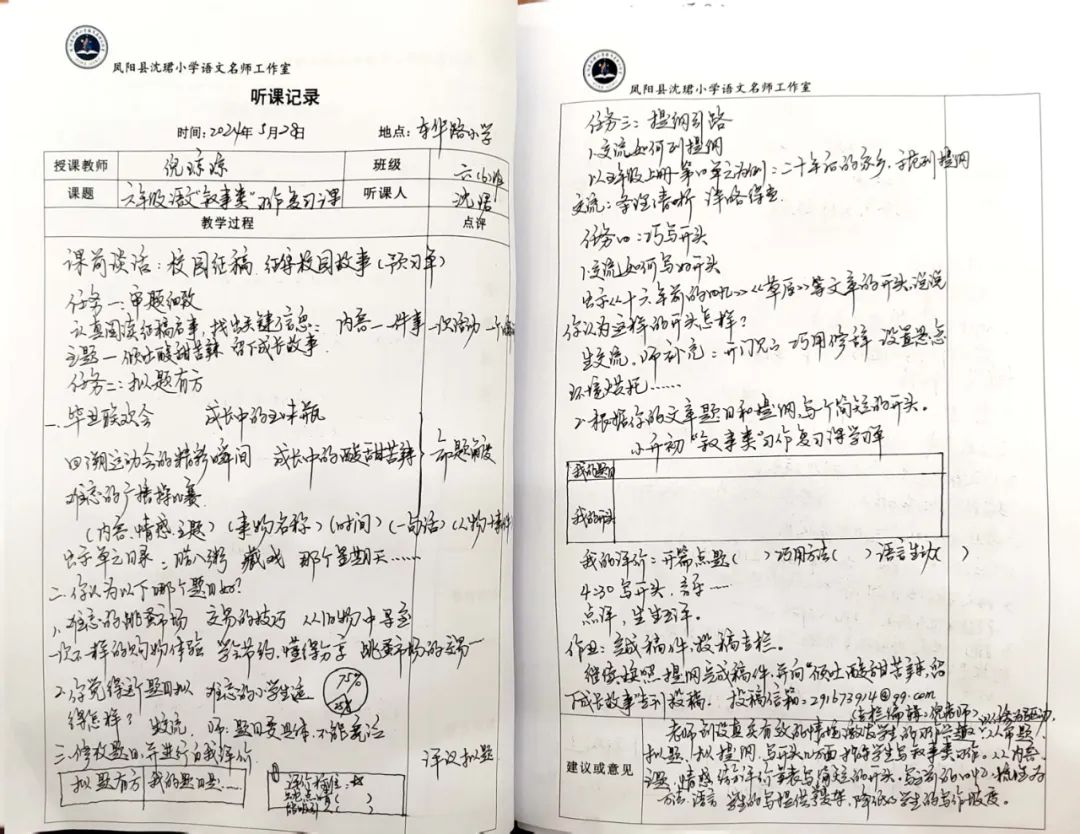 凤阳县沈珺小学语文名师工作室
听课记录
时间:2024年5月28日 地点:东华路小学
授课教师 倪琼琼 班级 六(6)班
课题 六年级语文"叙事类"习作复习课 听课人 沈珺
教学过程 点评
课前谈话:校园征稿 征集校园故事(预习单)
任务一:审题细致
认真阅读征稿启事,找出关键信息: 内容一 一件事 一次活动 一个
主题一 倾吐酸甜苦辣 留下成长故事
任务二:拟题有方
一、毕业联欢会 成长中的五味瓶
回溯运动会的精彩瞬间 成长中的酸甜苦辣 命题角度
难忘的广播操比赛
(内容、情感、主题)(事物名称)(时间)(一句话)(人物+事件
出示单元目录:腊八粥 藏戏 那个星期天……
二、你认为以下哪个题目好?
1、难忘的跳蚤市场 交易的技巧 从购物中寻
一次不一样的购物体验 学会节约,懂得分享 跳蚤市场的交易
2、你觉得这个题目拟 难忘的小学生活 75%
得怎样? 25%
生交流,师:题目要具体,不能宽泛
三、修改题目,并进行自我评价 评议拟题
拟题有方 我的题目是:…… 评价标准:☆
凤阳县沈珺小学语文名师工作室
任务三:提纲引路
1.交流如何列提纲
以五年级上册第四单元为例:二十年后的家乡,示范列提纲
交流:条理清晰 详略得当
任务四:巧写开头
1.交流如何写好开头
出示《十六年前的回忆》《草原》等文章的开头,说说
你认为这样的开头怎样?
生交流,师补充:开门见山 巧用修辞 设置悬念
环境烘托……
2.根据你的文章题目和提纲,写一个简短的开头。
小升初"叙事类"习作复习课学习单
我的题目
我的开头
我的评价:开篇点题( ) 巧用方法( ) 语言生动( )
4:30写开头,音乐……
点评,生生互评。
作业:完成稿件,投稿专栏。
继续按照提纲完成稿件,并向"倾吐酸甜苦辣,留
下成长故事"专刊投稿。 投稿信箱:291673914@qq.com
(专栏编辑:倪老师)
建议或意见
老师创设真实有效的情境,激发学生的习作兴趣,以任务为驱动,从命题、
拟题、拟提纲、写开头四方面指导学生写叙事类习作。从内容
方法、语言 学生的写提供支架,降低了学生的写作难度。